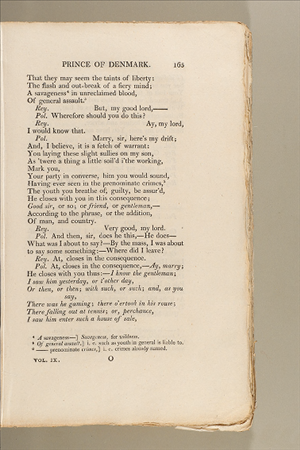 PRINCE OF DENMARK. 165
That they may seem the taints of liberty:
The flash and out-break of a fiery mind;
A savageness⁴ in unreclaimed blood,
Of general assault.⁵
Rey. But, my good lord,——
Pol. Wherefore should you do this?
Rey. Ay, my lord,
I would know that.
Pol. Marry, sir, here's my drift;
And, I believe, it is a fetch of warrant:
You laying these slight sullies on my son,
As 'twere a thing a little soil'd i'the working,
Mark you,
Your party in converse, him you would sound,
Having ever seen in the prenominate crimes,⁶
The youth you breathe of, guilty, be assur'd,
He closes with you in this consequence;
Good sir, or so; or friend, or gentleman,—
According to the phrase, or the addition,
Of man, and country.
Rey. Very good, my lord.
Pol. And then, sir, does he this,—He does—
What was I about to say?—By the mass, I was about
to say something:—Where did I leave?
Rey. At, closes in the consequence.
Pol. At, closes in the consequence,—Ay, marry;
He closes with you thus:—I know the gentleman;
I saw him yesterday, or t'other day,
Or then, or then; with such, or such; and, as you
say,
There was he gaming; there o'ertook in his rouse;
There falling out at tennis; or, perchance,
I saw him enter such a house of sale,
⁴ A savageness—] Savageness, for wildness.
⁵ Of general assault.] i. e. such as youth in general is liable to.
⁶ —— prenominate crimes,] i. e. crimes already named.
VOL. IX. O